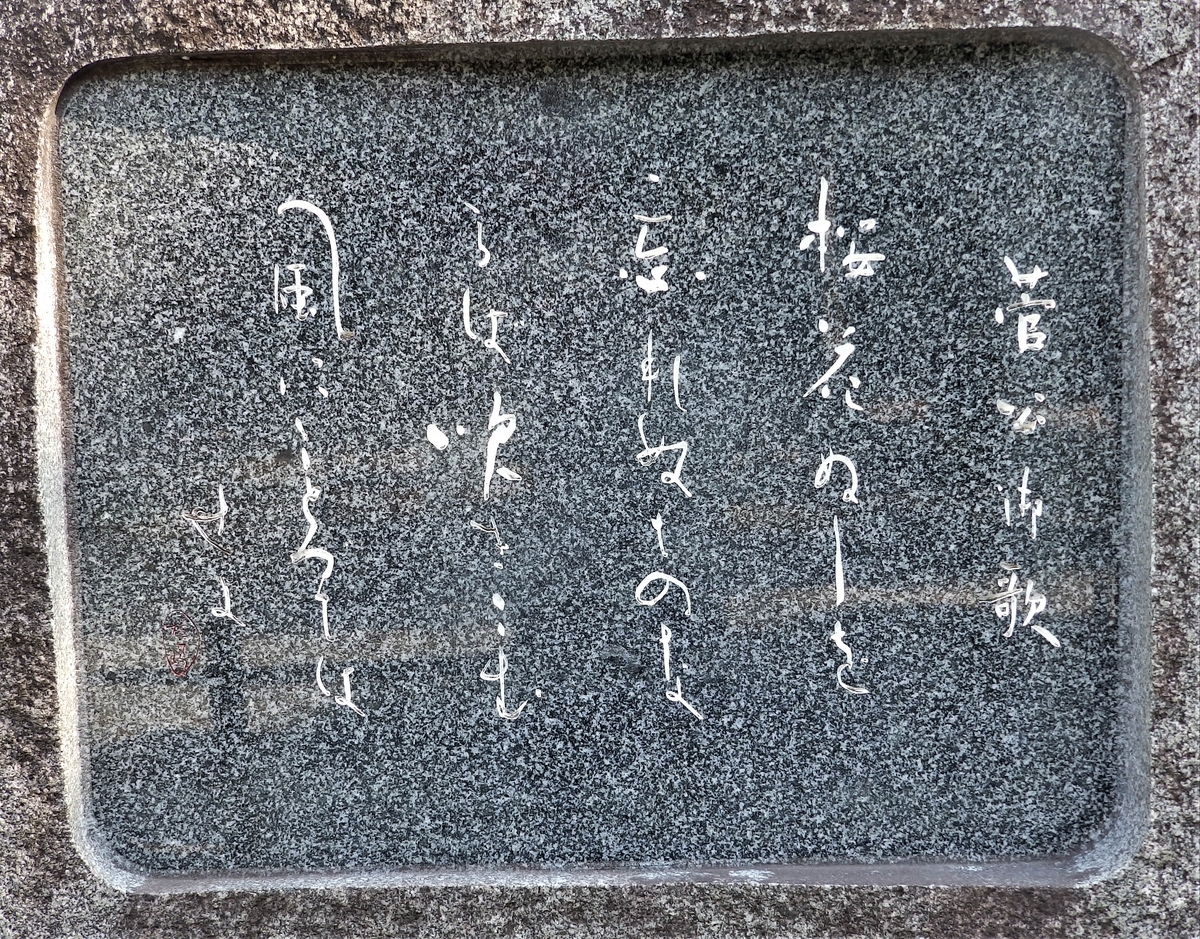 菅公御歌
桜花ぬしを
忘れぬものな
らば吹きこむ
風にことつては
せよ